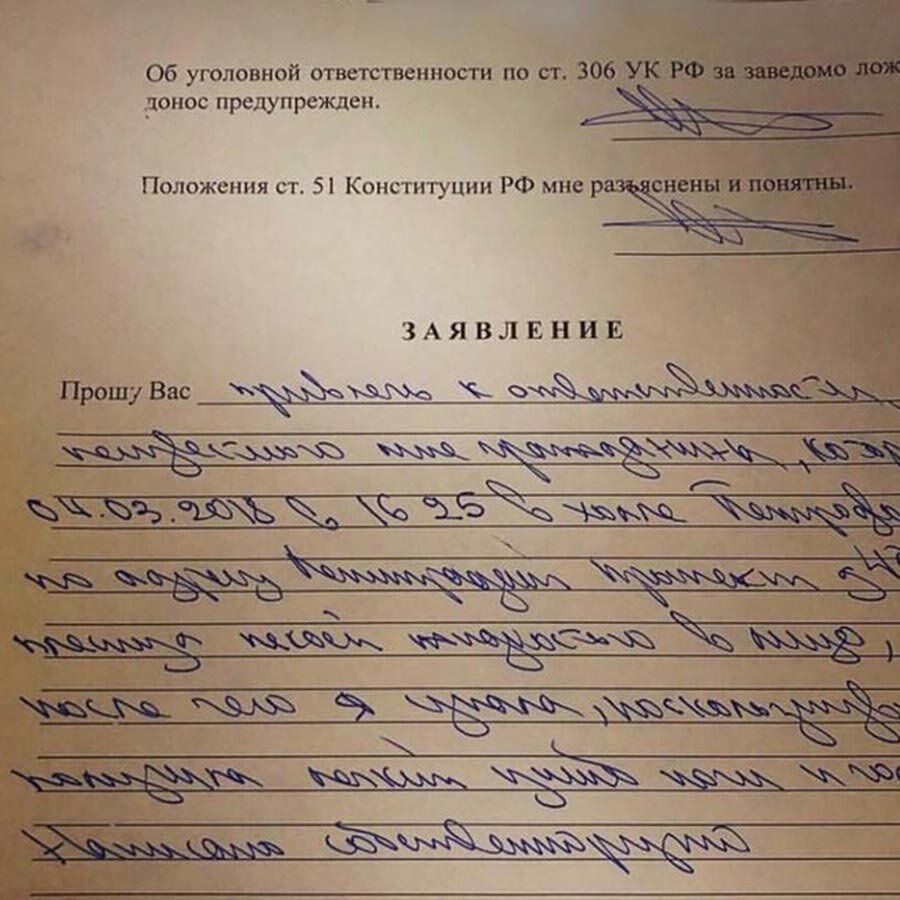 Об уголовной ответственности по ст. 306 УК РФ за заведомо лож
донос предупрежден.
Положения ст. 51 Конституции РФ мне разъяснены и понятны.
ЗАЯВЛЕНИЕ
Прошу Вас привлечь к ответственности
неизвестного мне гражданина,
04.03.2018 в 16 25 в холле
по адресу проспект
в лицо,
после чего я упала,
получила ушиб ноги и
Написано собственноручно